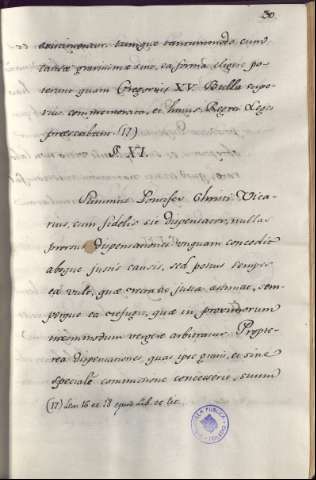 30.
tantæ gravissimæ sint, ea forma eligere po-
terunt quam Gregorius XV. Bulla supe-
rius commemorata, et hujus Regni Leges
præscribunt. (17)
§. XI.
Summus Pontifex Christi Vica-
rius, cum fidelis sit dispensator, nullas
prorsus dispensationes unquam concedit
absque justis causis, sed potius semper
ea vult, quæ recta et justa æstimat, sem-
perque ea effugit, quæ in
incommodum vergere arbitratur. Propte-
rea dispensationes, quas ipse gravi, et sine
speciale commissione concesserit, suum
(17) Len 16 et 18 ejus. Lib. et tit.